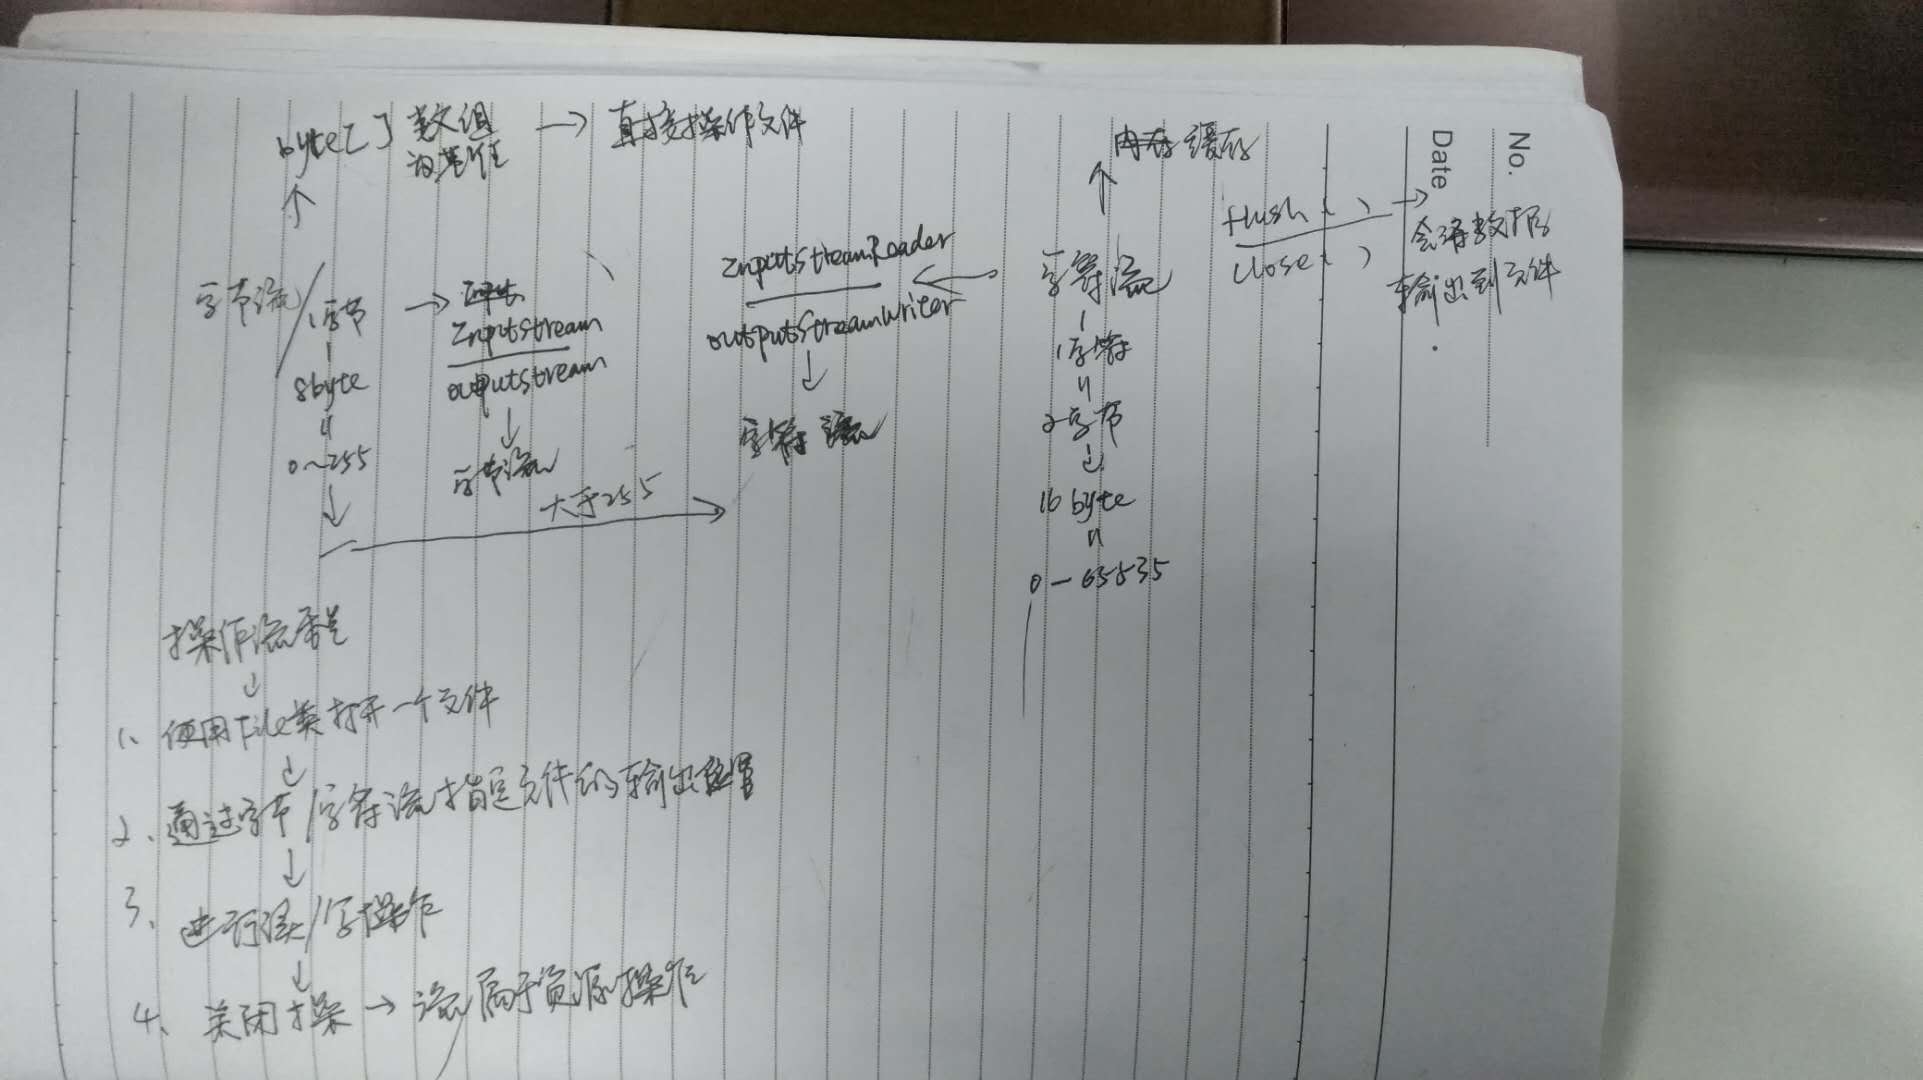 byte[] 数组 → 直接操作文件
为基准
↑
字节流/1字节 → InputStream
outputStream
↓
字节流
8byte
0~255
↓
大于255
InputStreamReader
outputStreamWriter
↓
字符流
内存 缓存
↑
字符流
1字符
2字节
↓
16 byte
0-65535
flush()
close()
→
会将数据
输出到文件
No.
Date
操作流程
↓
1、使用File类打开一个文件
↓
2、通过字节/字符流指定文件的输出位置
↓
3、进行读/写操作
↓
4、关闭操 → 流属于资源操作